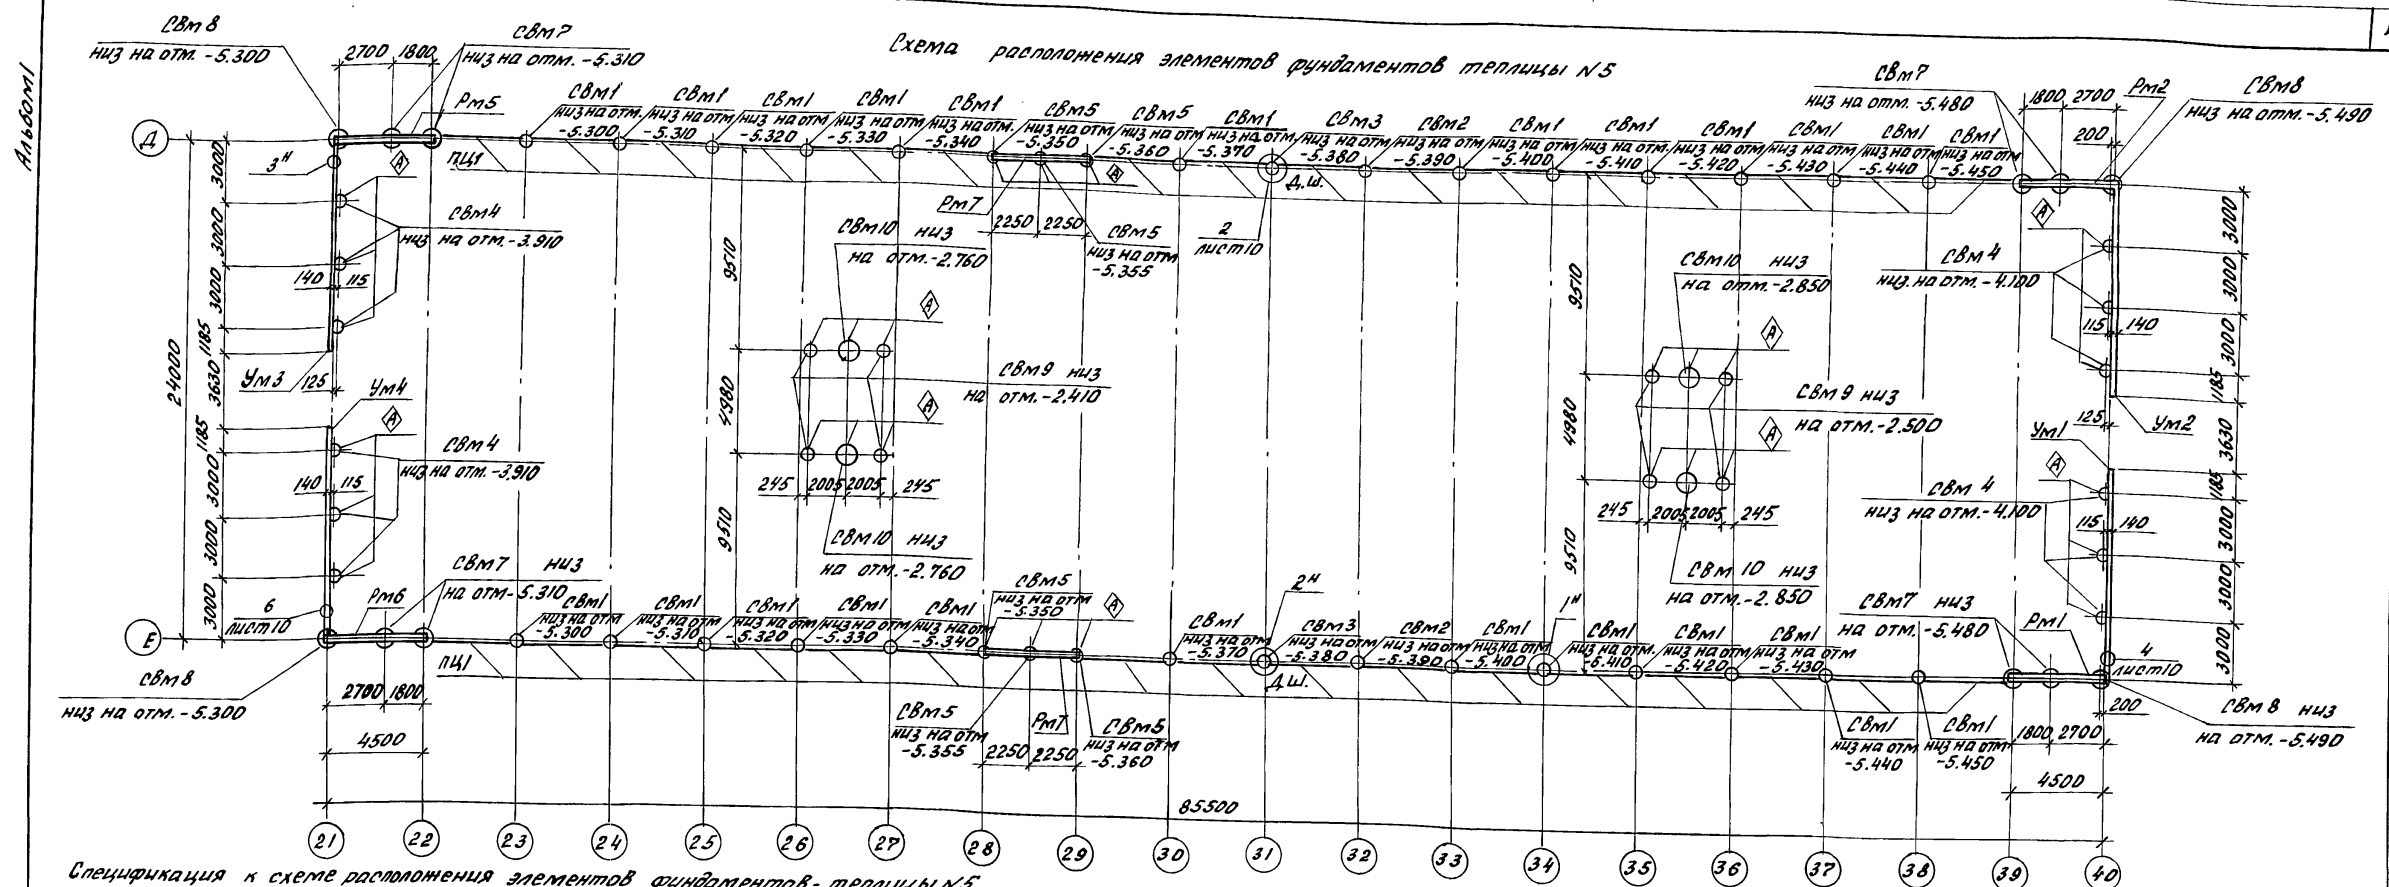 Альбом I
Схема расположения элементов фундаментов теплицы N5
СВм8
низ на отм. -5.300
2700
1800
СВм7
низ на отм. -5.310
Рм5
СВм1
низ на отм
-5.300
СВм1
низ на отм
-5.310
СВм1
низ на отм
-5.320
СВм1
низ на отм
-5.330
СВм1
низ на отм.
-5.340
СВм5
низ на отм
-5.350
СВм5
низ на отм
-5.360
СВм1
низ на отм
-5.370
СВм3
низ на отм.
-5.380
СВм2
низ на отм
-5.390
СВм1
низ на отм.
-5.400
СВм1
низ на отм
-5.410
СВм1
низ на отм
-5.420
СВм1
низ на отм
-5.430
СВм1
низ на отм
-5.440
СВм1
низ на отм
-5.450
СВм7
низ на отм. -5.480
1800
2700
Рм2
СВм8
низ на отм. -5.490
200
Д
3н
А
ПЦ1
СВм4
низ на отм. -3.910
140
115
Рм7
2250
2250
А
СВм5
низ на отм
-5.355
2
лист10
Д.ш.
А
СВм4
низ на отм. -4.100
115
140
3000
3000
3000
1185
3630
1185
3000
3000
3000
24000
Ум3
125
Ум4
А
СВм4
низ на отм. -3.910
140
115
9510
4980
9510
СВм10 низ
на отм. -2.760
А
СВм9 низ
на отм. -2.410
А
245
2005
2005
245
СВм10 низ
на отм. -2.760
9510
4980
9510
СВм10 низ
на отм. -2.850
А
СВм9 низ
на отм. -2.500
А
245
2005
2005
245
СВм10 низ
на отм. -2.850
3000
3000
3000
1185
3630
1185
3000
3000
3000
125
Ум1
Ум2
А
СВм4
низ на отм. -4.100
115
140
6
лист10
Рм6
СВм7 низ
на отм -5.310
СВм1
низ на отм
-5.300
СВм1
низ на отм
-5.310
СВм1
низ на отм
-5.320
СВм1
низ на отм
-5.330
СВм1
низ на отм
-5.340
СВм5
низ на отм
-5.350
А
СВм1
низ на отм
-5.370
2н
СВм3
низ на отм
-5.380
СВм2
низ на отм
-5.390
СВм1
низ на отм
-5.400
1н
СВм1
низ на отм.
-5.410
СВм1
низ на отм
-5.420
СВм1
низ на отм
-5.430
СВм7 низ
на отм. -5.480
Рм1
4
лист10
Е
ПЦ1
Д.ш.
СВм8
низ на отм. -5.300
2700
1800
4500
СВм5
низ на отм
-5.355
2250
2250
Рм7
СВм5
низ на отм
-5.360
СВм1
низ на отм
-5.440
СВм1
низ на отм
-5.450
1800
2700
200
СВм8 низ
на отм. -5.490
4500
85500
21
22
23
24
25
26
27
28
29
30
31
32
33
34
35
36
37
38
39
40
Спецификация к схеме расположения элементов фундаментов теплицы N5